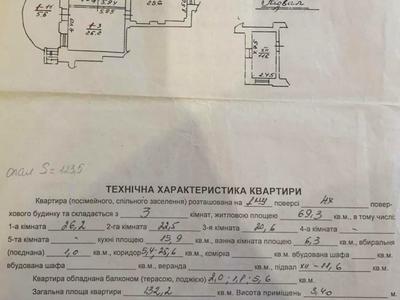 1-11
5,6
4.40
5.94
5.95
1-3
26,2
25.6
Підвал
4.75
2.45
опал S = 123,5
ТЕХНІЧНА ХАРАКТЕРИСТИКА КВАРТИРИ
Квартира (посімейного, спільного заселення) розташована на 2му поверсі 4х повер-
хового будинку та складається з 3 кімнат, житловою площею 69,3 кв.м., в тому числі:
1-а кімната 26,2 2-га кімната 22,5 3-я кімната 20,6 4-а кімната -
5-та кімната - кухні площею 15,9 кв.м., ванна кімната 6,3 кв.м., вбиральня
(поєднана) 1,0 кв.м., коридор 5,4; 25,6 кв.м., комірка кв.м., вбудована шафа
вбудована шафа кв.м., веранда кв.м., підвал 11,6 кв.м.
Квартира обладнана балконом (терасою, лоджією) 2,0; 1,8; 5,6 кв.м.
Загальна площа квартири 132,2 кв.м. Висота приміщень 3,40 м.